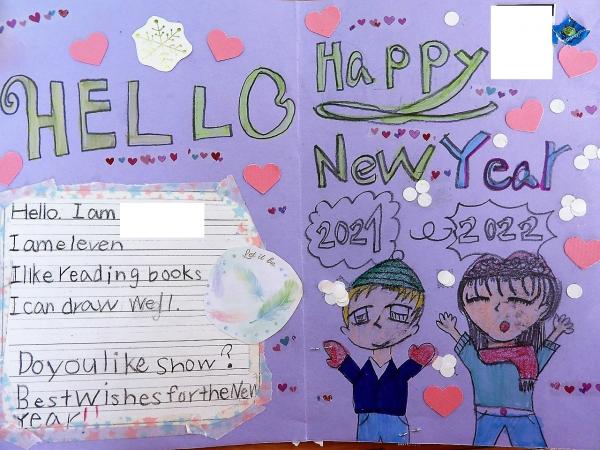 HELLO
Hello. I am
I am eleven
I like reading books
I can draw well.
Do you like snow?
Best wishes for the New
Year!!
Let it be
Happy
New Year
2021
2022